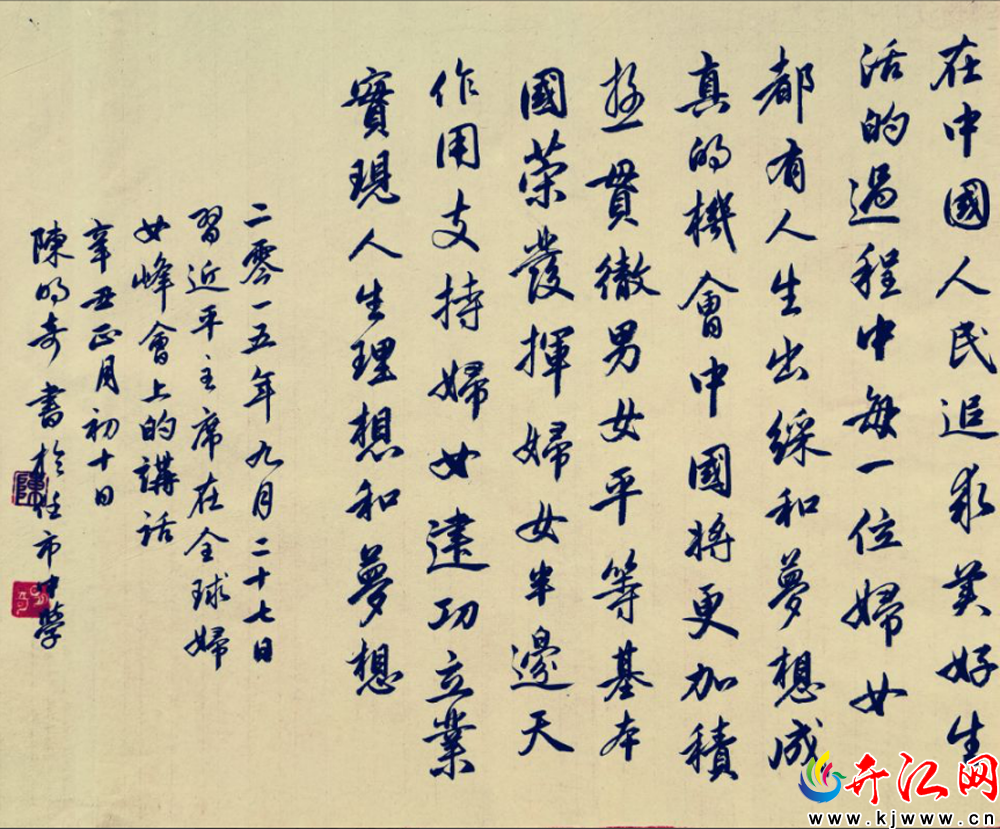 在中國人民追求美好生
活的過程中每一位婦女
都有人生出綵和夢想成
真的機會中國將更加積
極貫徹男女平等基本
國策發揮婦女半邊天
作用支持婦女建功立業
實現人生理想和夢想
二零一五年九月二十七日
習近平主席在全球婦
女峰會上的講話
辛丑正月初十日
陳明奇書於任市中學
陳
开江网
www.kjwww.cn